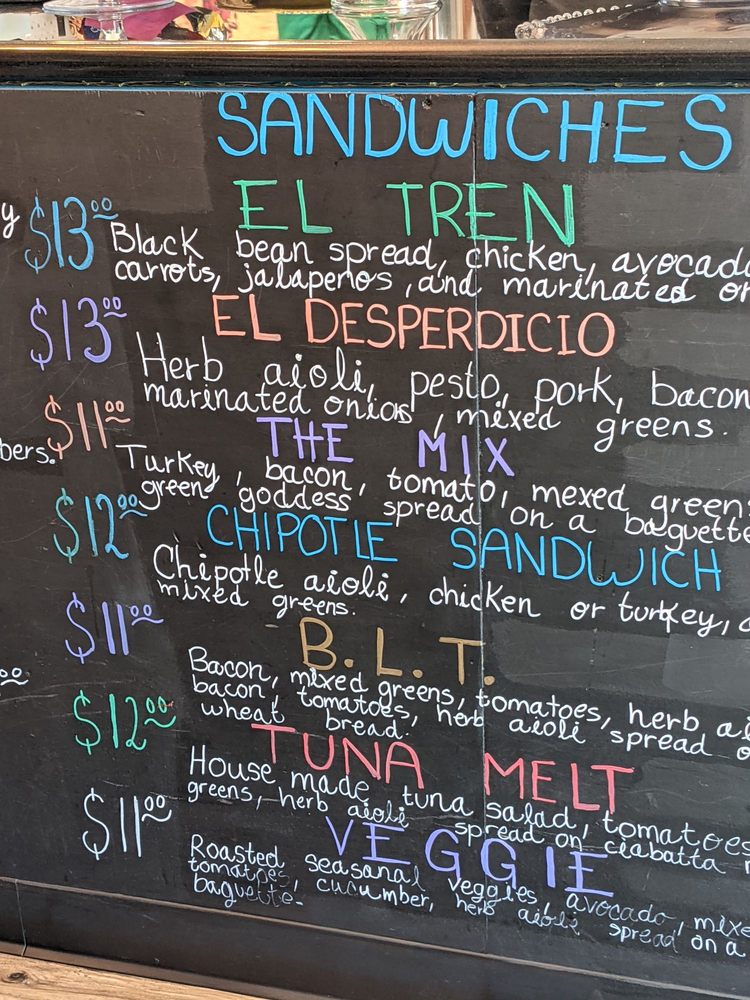 SANDWICHES
y $13.00 EL TREN
Black bean spread, chicken, avocado
carrots, jalapeños, and marinated on
$13.00 EL DESPERDICIO
Herb aioli, pesto, pork, bacon
marinated onios, mixed greens.
$11.00 THE MIX
bers. Turkey, bacon, tomato, mexed greens
green goddess spread on a baguette
$12.00 CHIPOTLE SANDWICH
Chipotle aioli, chicken or turkey, a
mixed greens.
$11.00 B.L.T.
Bacon, mixed greens, tomatoes, herb ai
bacon, tomatoes, herb aioli spread o
wheat bread.
$12.00 TUNA MELT
House made tuna salad, tomatoes
greens, herb aioli spread on ciabatta
$11.00 VEGGIE
Roasted seasanal veggies, avocado, mixe
tomatoes, cucumber, herb aioli spread on a
baguette.